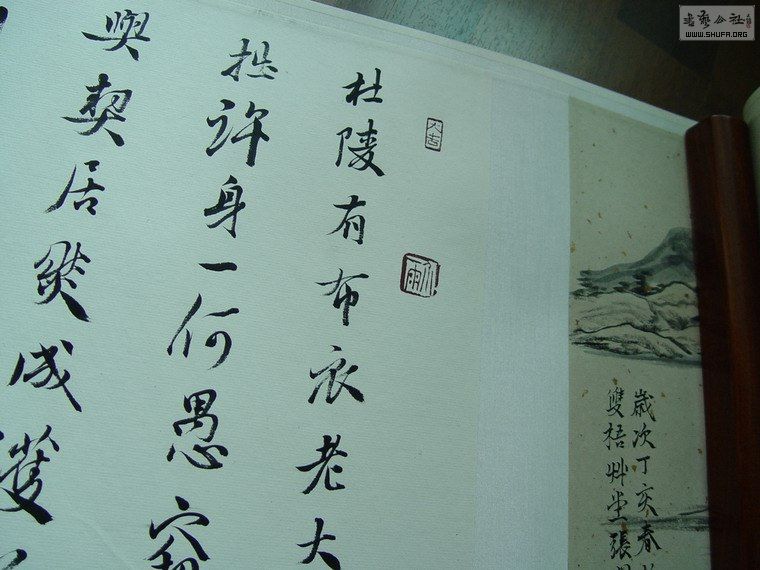 杜陵有布衣老大
拙許身一何愚竊
與契居然成濩
大吉
歲次丁亥春
雙梧艸堂張
書藝公社
WWW.SHUFA.ORG